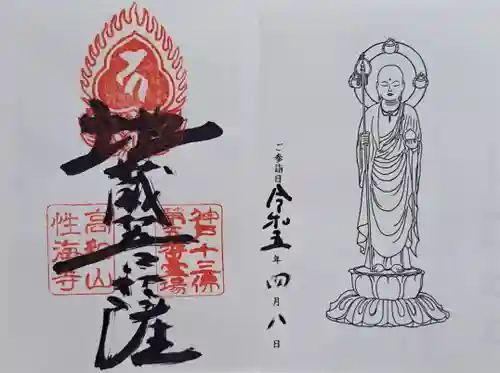 地蔵菩薩
神戸十三佛
第五番霊場
高和山
性海寺
ご参詣日 令和五年 四月 八日